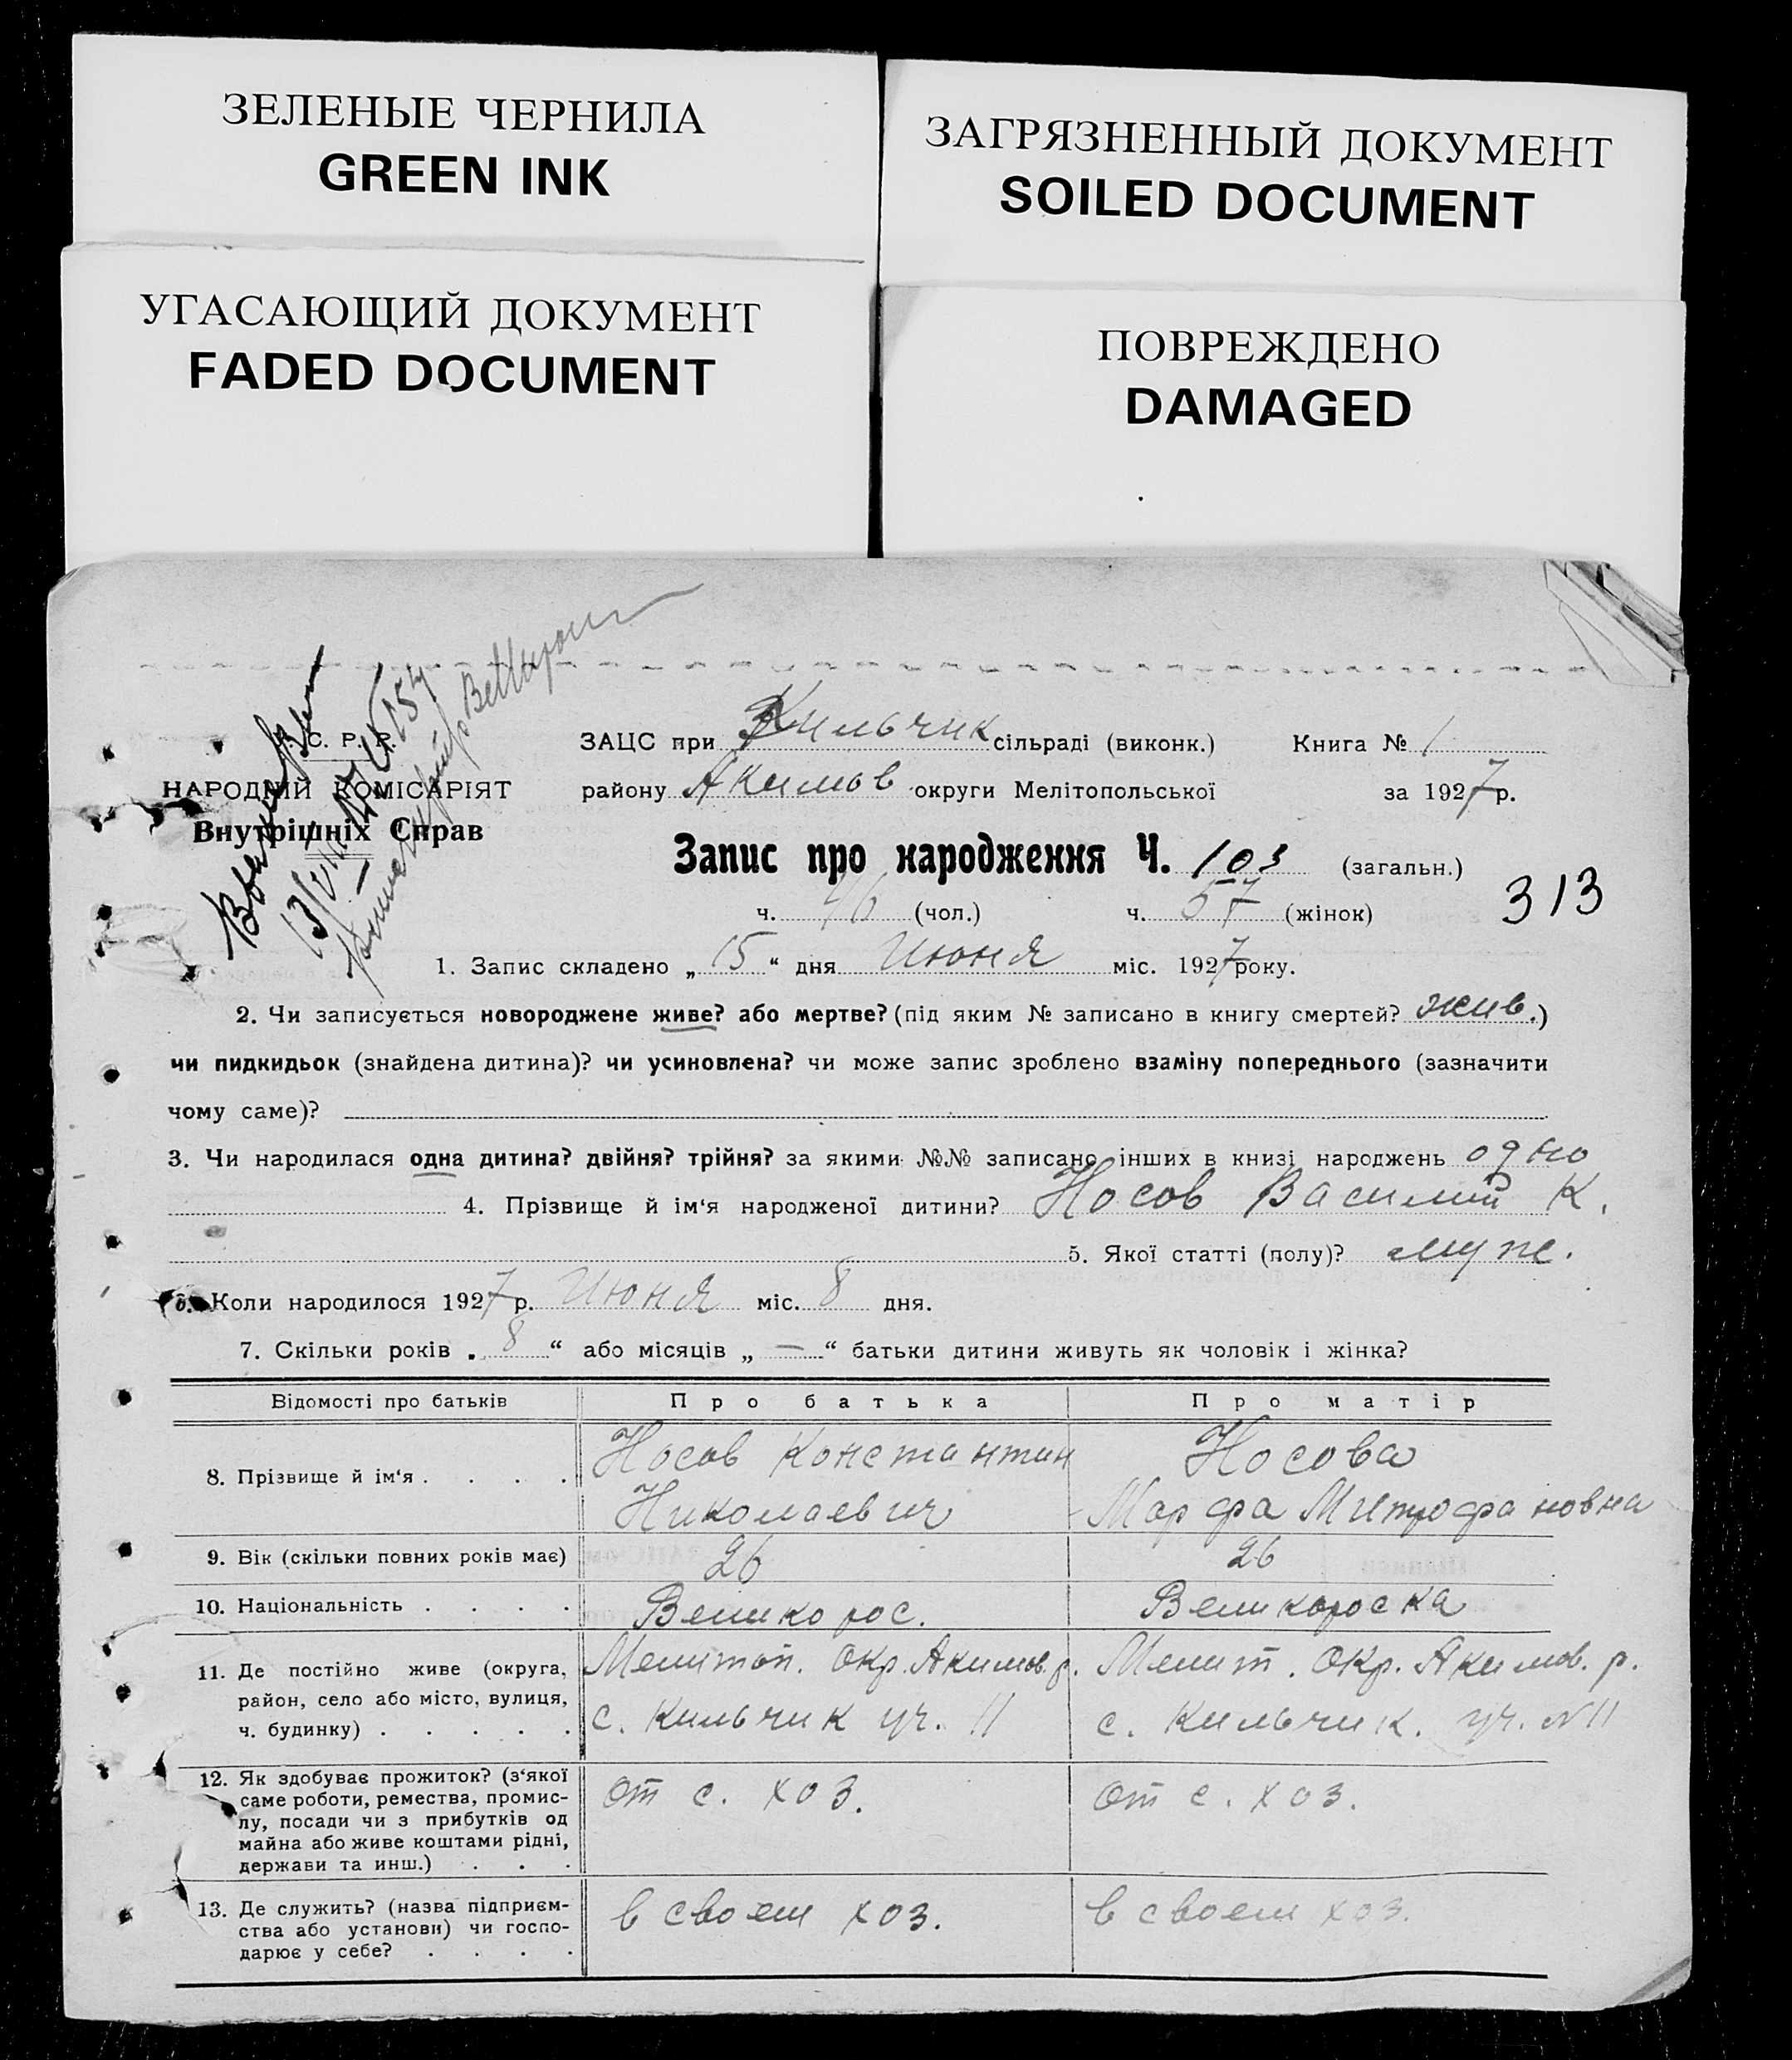 ЗЕЛЕНЫЕ ЧЕРНИЛА
GREEN INK
ЗАГРЯЗНЕННЫЙ ДОКУМЕНТ
SOILED DOCUMENT
УГАСАЮЩИЙ ДОКУМЕНТ
FADED DOCUMENT
ПОВРЕЖДЕНО
DAMAGED
С. Р. Р.
НАРОДНІЙ КОМІСАРІЯТ
Внутрішніх Справ
ЗАЦС при Кильчик сільраді (виконк.) Книга № 1
району Акимов округи Мелітопольської за 1927 р.
Запис про народження Ч. 103 (загальн.)
ч. 46 (чол.) ч. 57 (жінок) 313
1. Запис складено „ 15 “ дня Июня міс. 1927 року.
2. Чи записується новороджене живе? або мертве? (під яким № записано в книгу смертей? жив.)
чи пидкидьок (знайдена дитина)? чи усиновлена? чи може запис зроблено взаміну попереднього (зазначити
чому саме)?
3. Чи народилася одна дитина? двійня? трійня? за якими №№ записано інших в книзі народжень одно
4. Прізвище й ім‘я народженої дитини? Носов Василий К.
5. Якої статті (полу)? муж.
6. Коли народилося 1927 р. Июня міс. 8 дня.
7. Скільки років „ 8 “ або місяців „ — “ батьки дитини живуть як чоловік і жінка?
Відомості про батьків Про батька Про матір
8. Прізвище й ім‘я . . . . Носов Константин Николаевич Носова Марфа Митрофановна
9. Вік (скільки повних років має) 26 26
10. Національність . . . . Великорос. Великороска
11. Де постійно живе (округа, Мелитоп. Окр. Акимов. р. Мелит. Окр. Акимов. р.
район, село або місто, вулиця, с. Кильчик уч. 11 с. Кильчик. уч. N 11
ч. будинку) . . . . .
12. Як здобуває прожиток? (з‘якої от с. хоз. от с. хоз.
саме роботи, ремества, промис-
лу, посади чи з прибутків од
майна або живе коштами рідні,
держави та инш.) . . .
13. Де служить? (назва підприєм- в своем хоз. в своем хоз.
ства або установи) чи госпо-
дарює у себе? . . . .